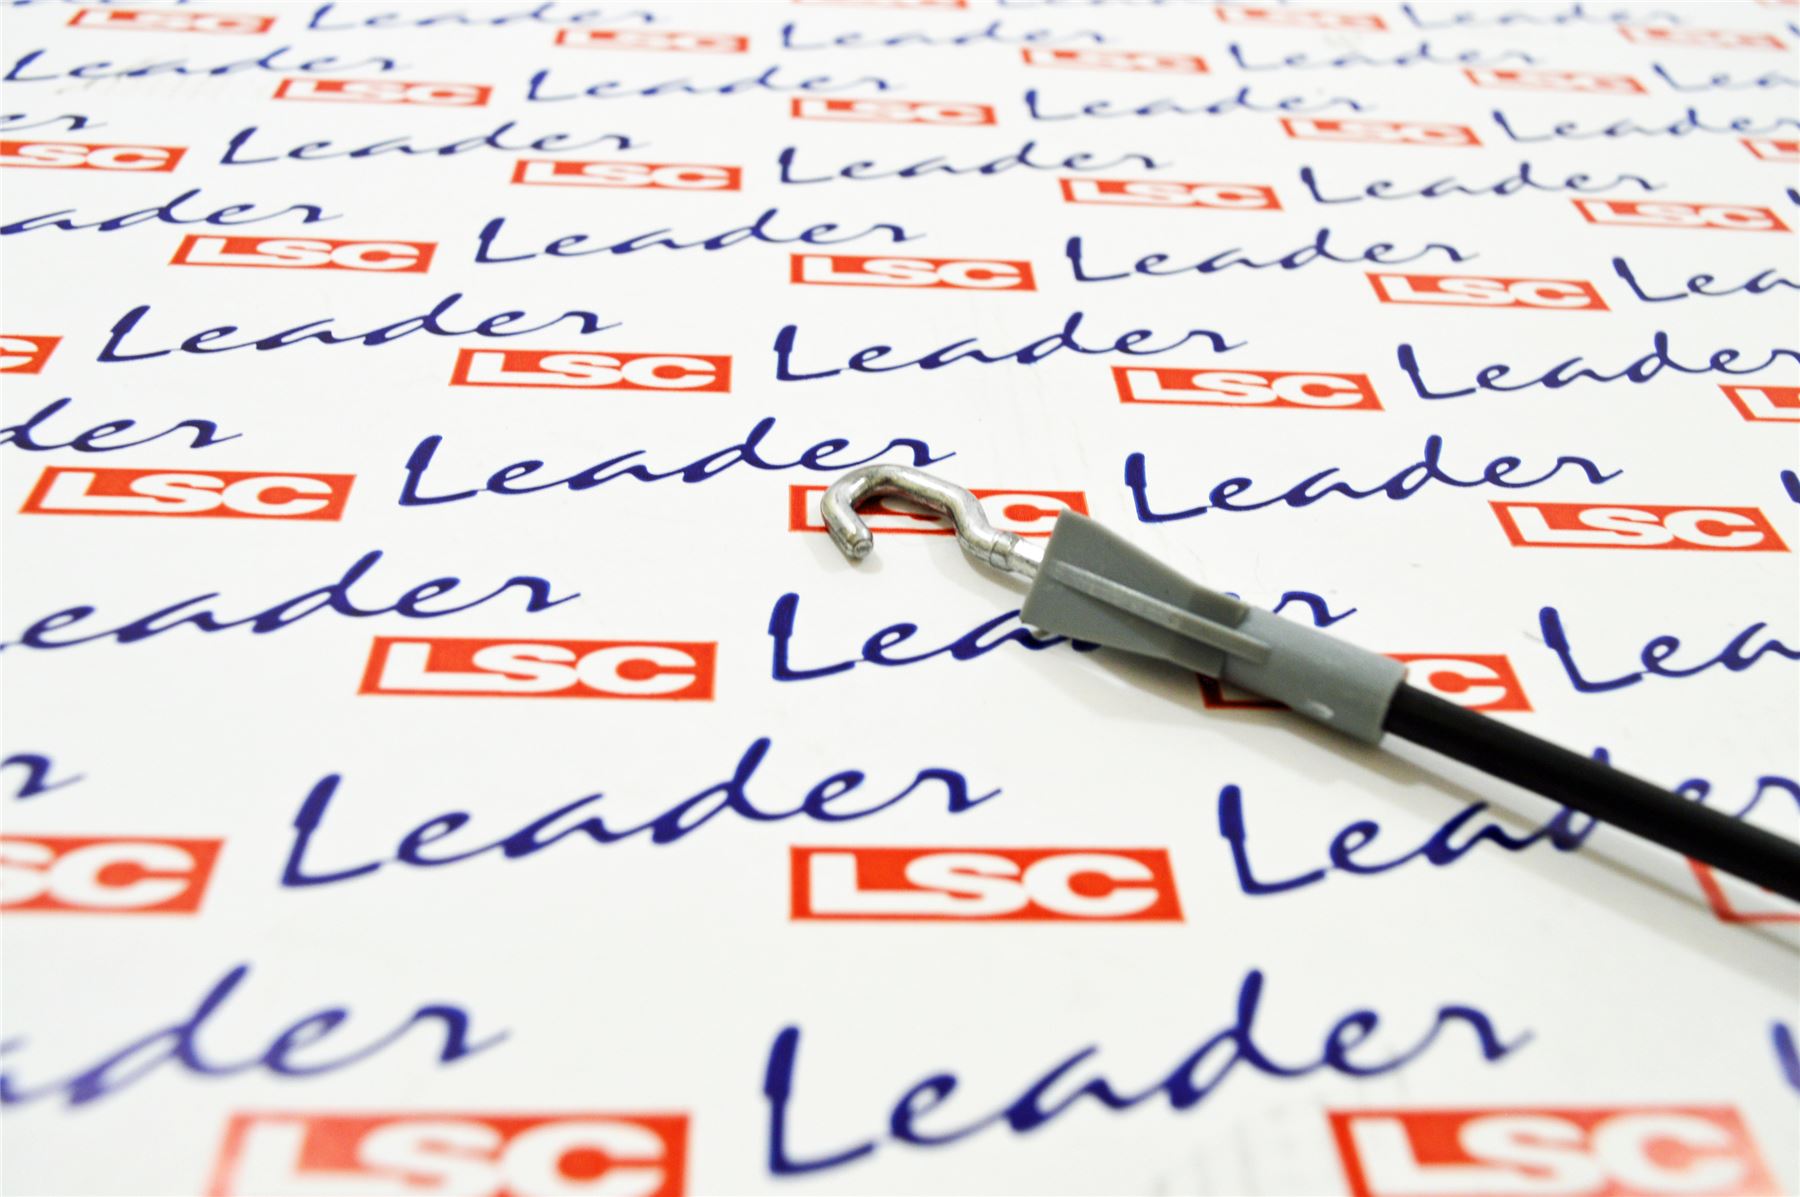 LSC Leader LSC Leader LSC Leader LSC
Leader LSC Leader LSC Leader LSC Leader
LSC Leader LSC Leader LSC Leader LSC
Leader LSC Leader LSC Leader LSC
LSC Leader LSC Leader LSC Leader
LSC Leader LSC Leader LSC
Leader LSC Leader LSC
LSC Leader LSC Leader
LSC Leader LSC